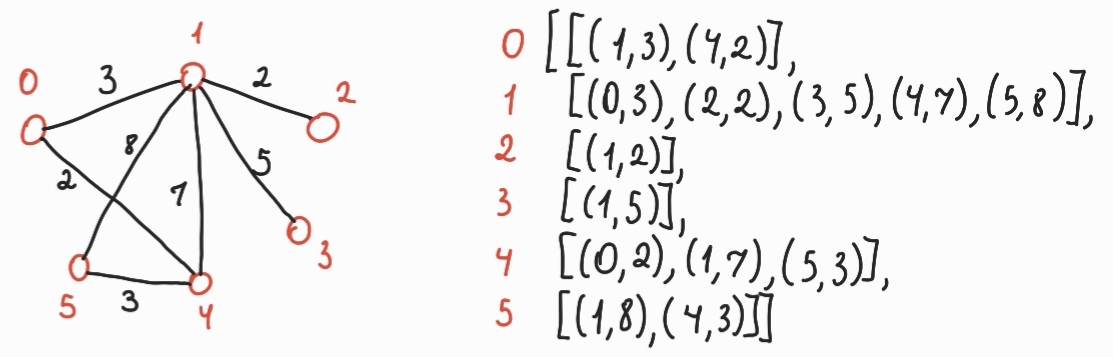 1
0 3 2 2
8 7 5
2
3
5 3 4
0 [[(1,3),(4,2)],
1 [(0,3),(2,2),(3,5),(4,7),(5,8)],
2 [(1,2)],
3 [(1,5)],
4 [(0,2),(1,7),(5,3)],
5 [(1,8),(4,3)]]